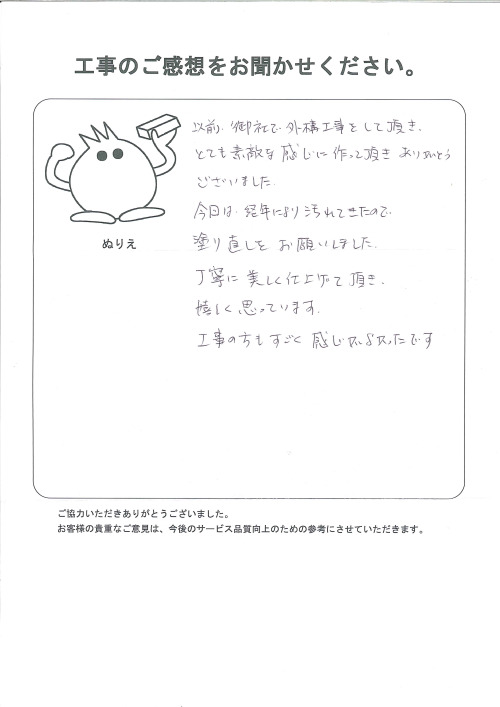 工事のご感想をお聞かせください。
以前、御社で外構工事をして頂き、
とても素敵な感じに作って頂きありがとう
ございました。
今回は、経年により汚れてきたので、
塗り直しをお願いしました。
丁寧に美しく仕上げて頂き、
嬉しく思っています。
工事の方もすごく感じがよかったです
ぬりえ
ご協力いただきありがとうございました。
お客様の貴重なご意見は、今後のサービス品質向上のための参考にさせていただきます。